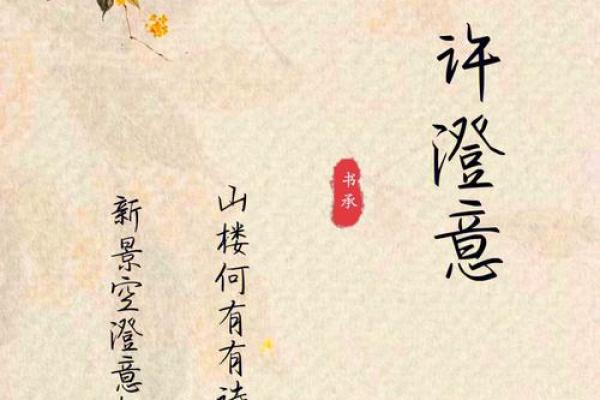 许澄意
书承
山楼何有有
新景空澄意